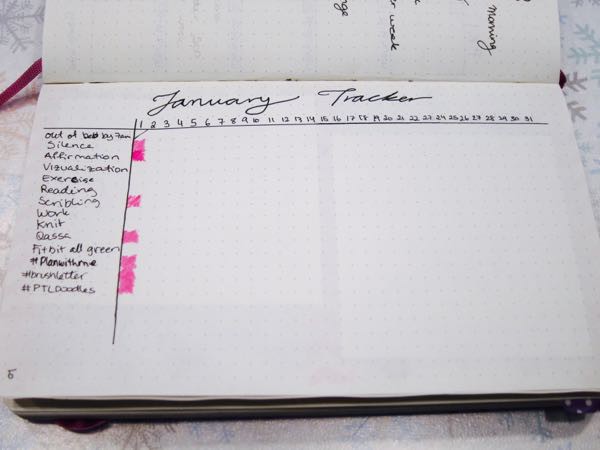 nge
er week
Morning
January Tracker
1 2 3 4 5 6 7 8 9 10 11 12 13 14 15 16 17 18 19 20 21 22 23 24 25 26 27 28 29 30 31
out of bed by 7am
Silence
Affirmation
Vizualization
Exercise
Reading
Scribling
Work
Knit
Qassa
Fitbit all green
#Planwithme
#brushletter
#PTLDoodles
5